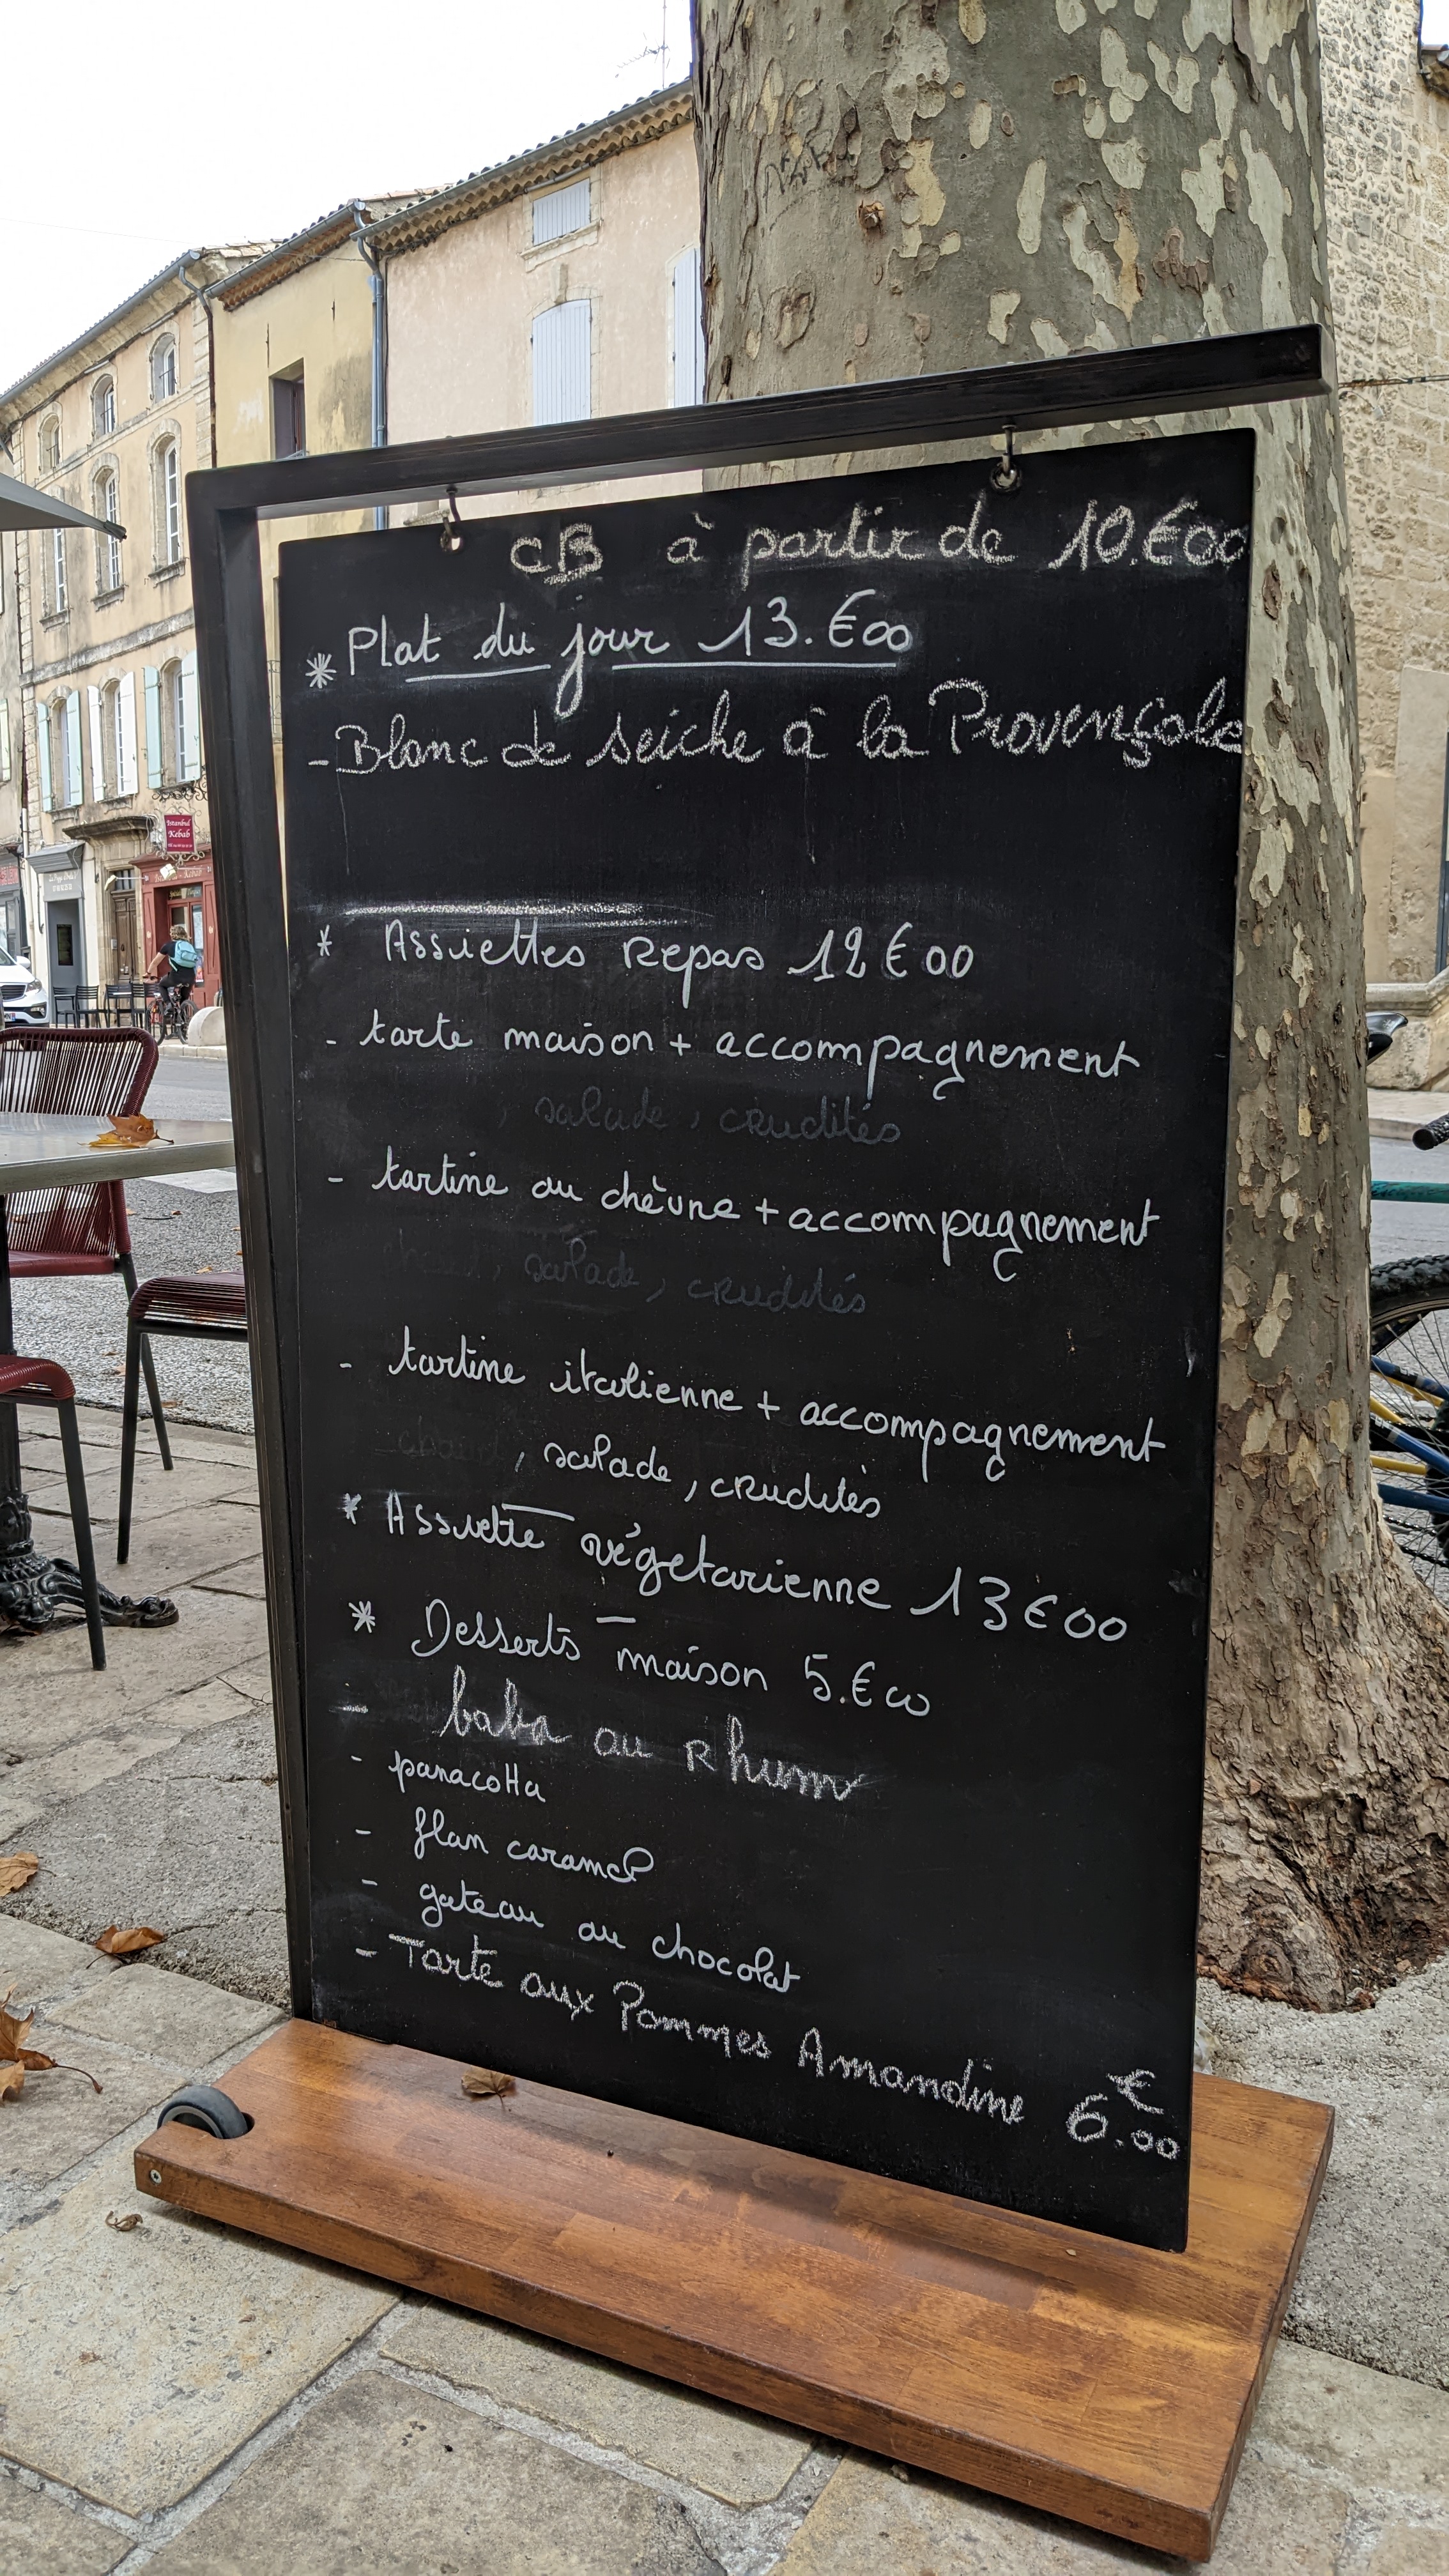 CB à partir de 10.€00
* Plat du jour 13.€00
- Blanc de seiche à la Provençale
* Assiettes Repas 12€00
- tarte maison + accompagnement
, salade, crudités
- tartine au chèvre + accompagnement
, salade, crudités
- tartine italienne + accompagnement
chaud, salade, crudités
* Assiette végétarienne 13€00
* Desserts maison 5.€00
- baba au Rhum
- panacotta
- flan caramel
- gateau au chocolat
- Tarte aux Pommes Amandine 6.00 €
Istanbul
Kebab